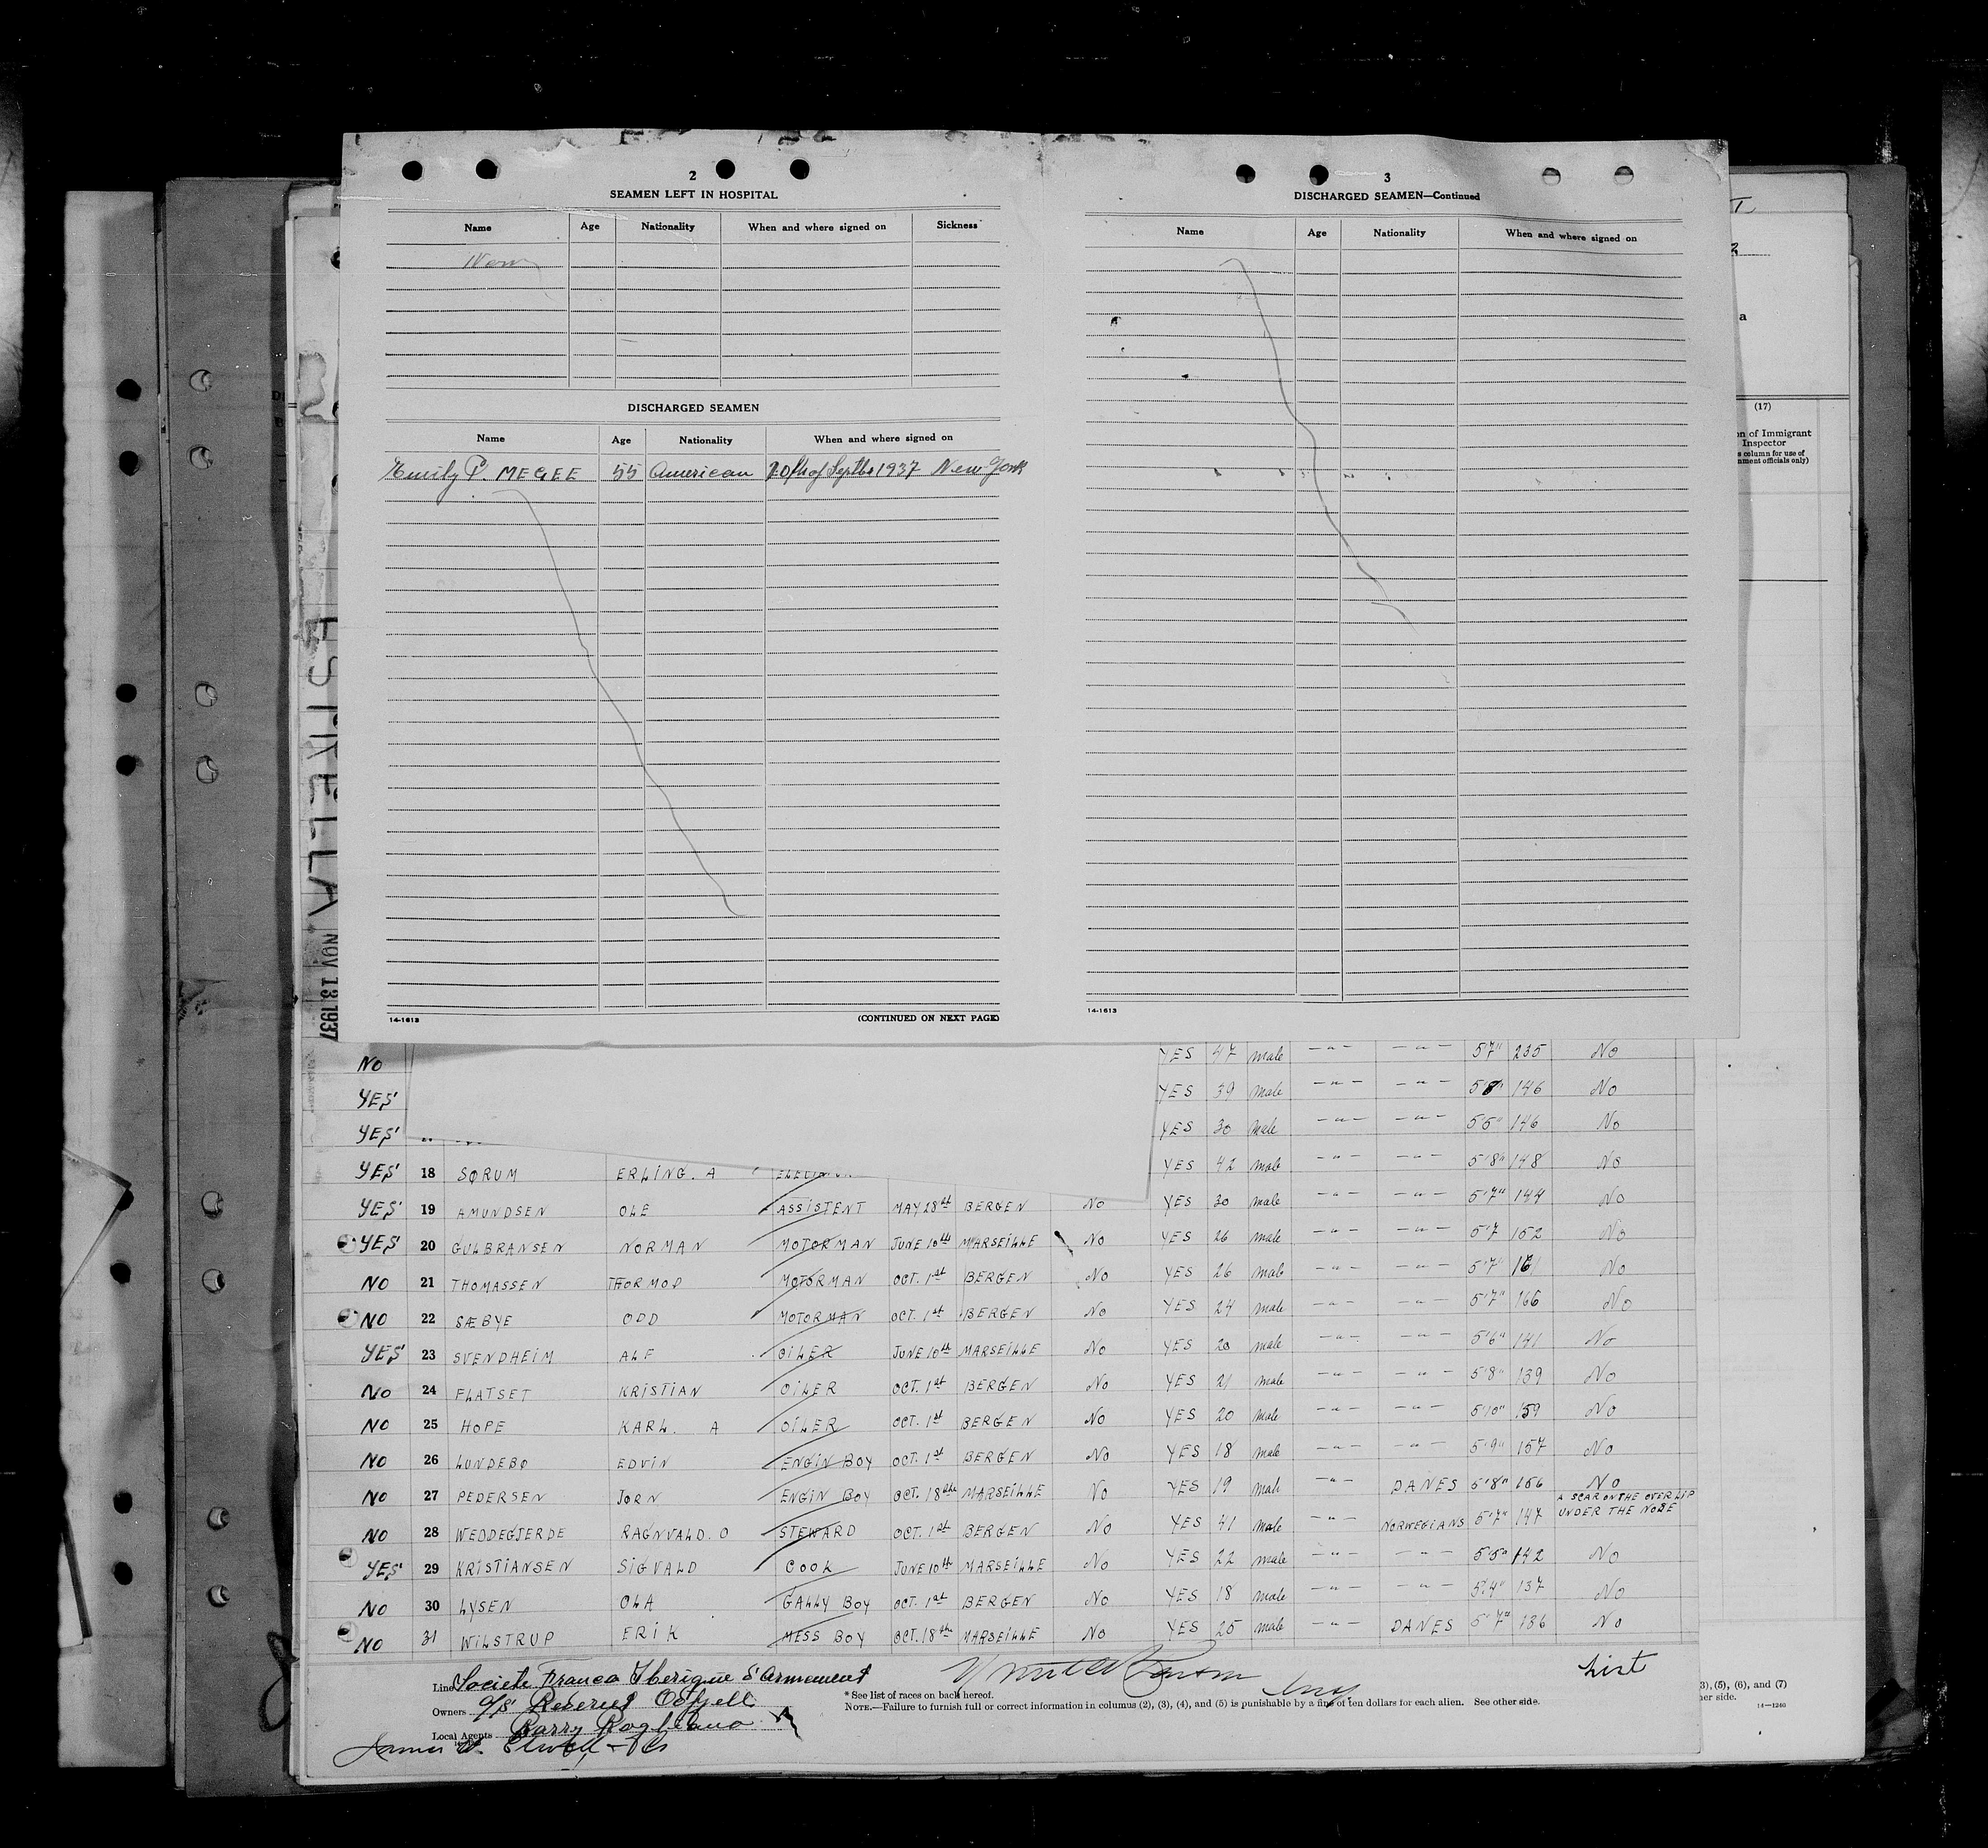 2
SEAMEN LEFT IN HOSPITAL
Name Age Nationality When and where signed on Sickness
DISCHARGED SEAMEN
Name Age Nationality When and where signed on
Emily P. MEGEE 55 American 20th of Septbr 1937 New York
14-1613 (CONTINUED ON NEXT PAGE)
3
DISCHARGED SEAMEN—Continued
Name Age Nationality When and where signed on
14-1613
(17)
on of Immigrant
Inspector
s column for use of
nment officials only)
ESTRELLA NOV 13 1937
NO YES 47 male —"— —"— 5'7" 235 No
YES YES 39 male —"— —"— 146 No
YES YES 30 male —"— —"— 5'5" 146 No
YES 18 SØRUM ERLING. A YES 42 male —"— —"— 5'8" 148 No
YES 19 AMUNDSEN OLE ASSISTENT MAY 28st BERGEN No YES 30 male —"— —"— 5'7" 144 No
YES 20 GULBRANSEN NORMAN MOTORMAN JUNE 10th MARSEILLE No YES 26 male —"— —"— 5'7 152 No
NO 21 THOMASSEN THORMOD MOTORMAN OCT. 1st BERGEN No YES 26 male —"— —"— 5'7" 161 No
NO 22 SÆBYE ODD MOTORMAN OCT. 1st BERGEN No YES 24 male —"— —"— 5'7" 166 No
YES 23 SVENDHEIM ALF OILER JUNE 10th MARSEILLE No YES 20 male —"— —"— 5'6" 141 No
NO 24 FLATSET KRISTIAN OILER OCT. 1st BERGEN No YES 21 male —"— —"— 5'8" 139 No
NO 25 HOPE KARL. A OILER OCT. 1st BERGEN No YES 20 male —"— —"— 5'10" 159 No
NO 26 LUNDEBØ EDVIN ENGIN BOY OCT. 1st BERGEN No YES 18 male —"— —"— 5'9" 157 No
NO 27 PEDERSEN JØRN ENGIN BOY OCT. 18the MARSEILLE No YES 19 male —"— DANES 5'8" 156 No
NO 28 WEDDEGJERDE RAGNVALD. O STEWARD OCT. 1st BERGEN No YES 41 male —"— NORWEGIANS 5'7" 147 A SCAR ON THE OVERLIP UNDER THE NOSE
YES 29 KRISTIANSEN SIGVALD COOK JUNE 10th MARSEILLE No YES 22 male —"— —"— 5'5" 142 No
NO 30 LYSEN OLA GALLY BOY OCT. 1st BERGEN No YES 18 male —"— —"— 5'4" 137 No
NO 31 WILSTRUP ERIK MESS BOY OCT. 18the MARSEILLE No YES 25 male —"— DANES 5'7" 136 No
Line Societe Franco Iberique d'Armement
Owners
Local Agents Barry Rogliano
James W. Elwell
* See list of races on back hereof.
NOTE.—Failure to furnish full or correct information in columns (2), (3), (4), and (5) is punishable by a fine of ten dollars for each alien. See other side.
List
3), (5), (6), and (7)
her side.
14—1240